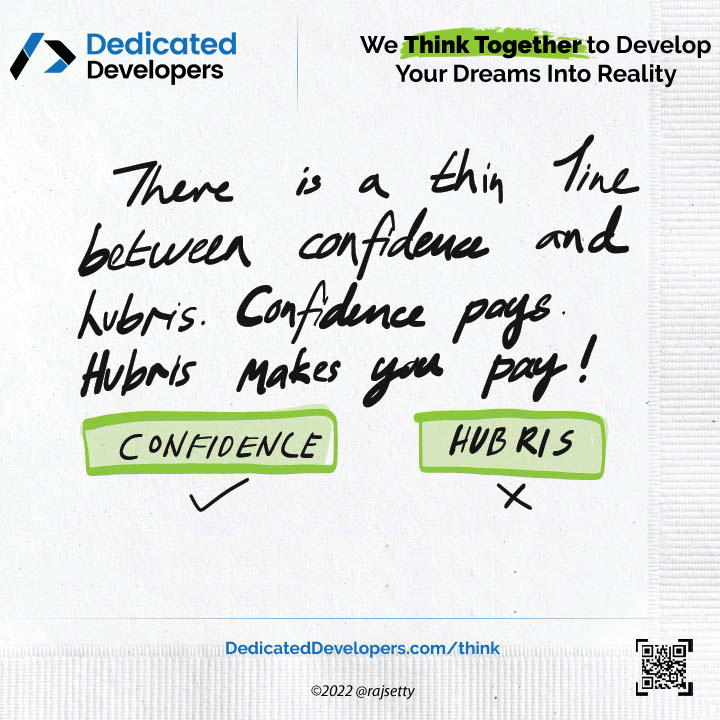 Dedicated
Developers
We Think Together to Develop
Your Dreams Into Reality
There is a thin line
between confidence and
hubris. Confidence pays.
Hubris makes you pay!
CONFIDENCE
HUBRIS
DedicatedDevelopers.com/think
©2022 @rajsetty